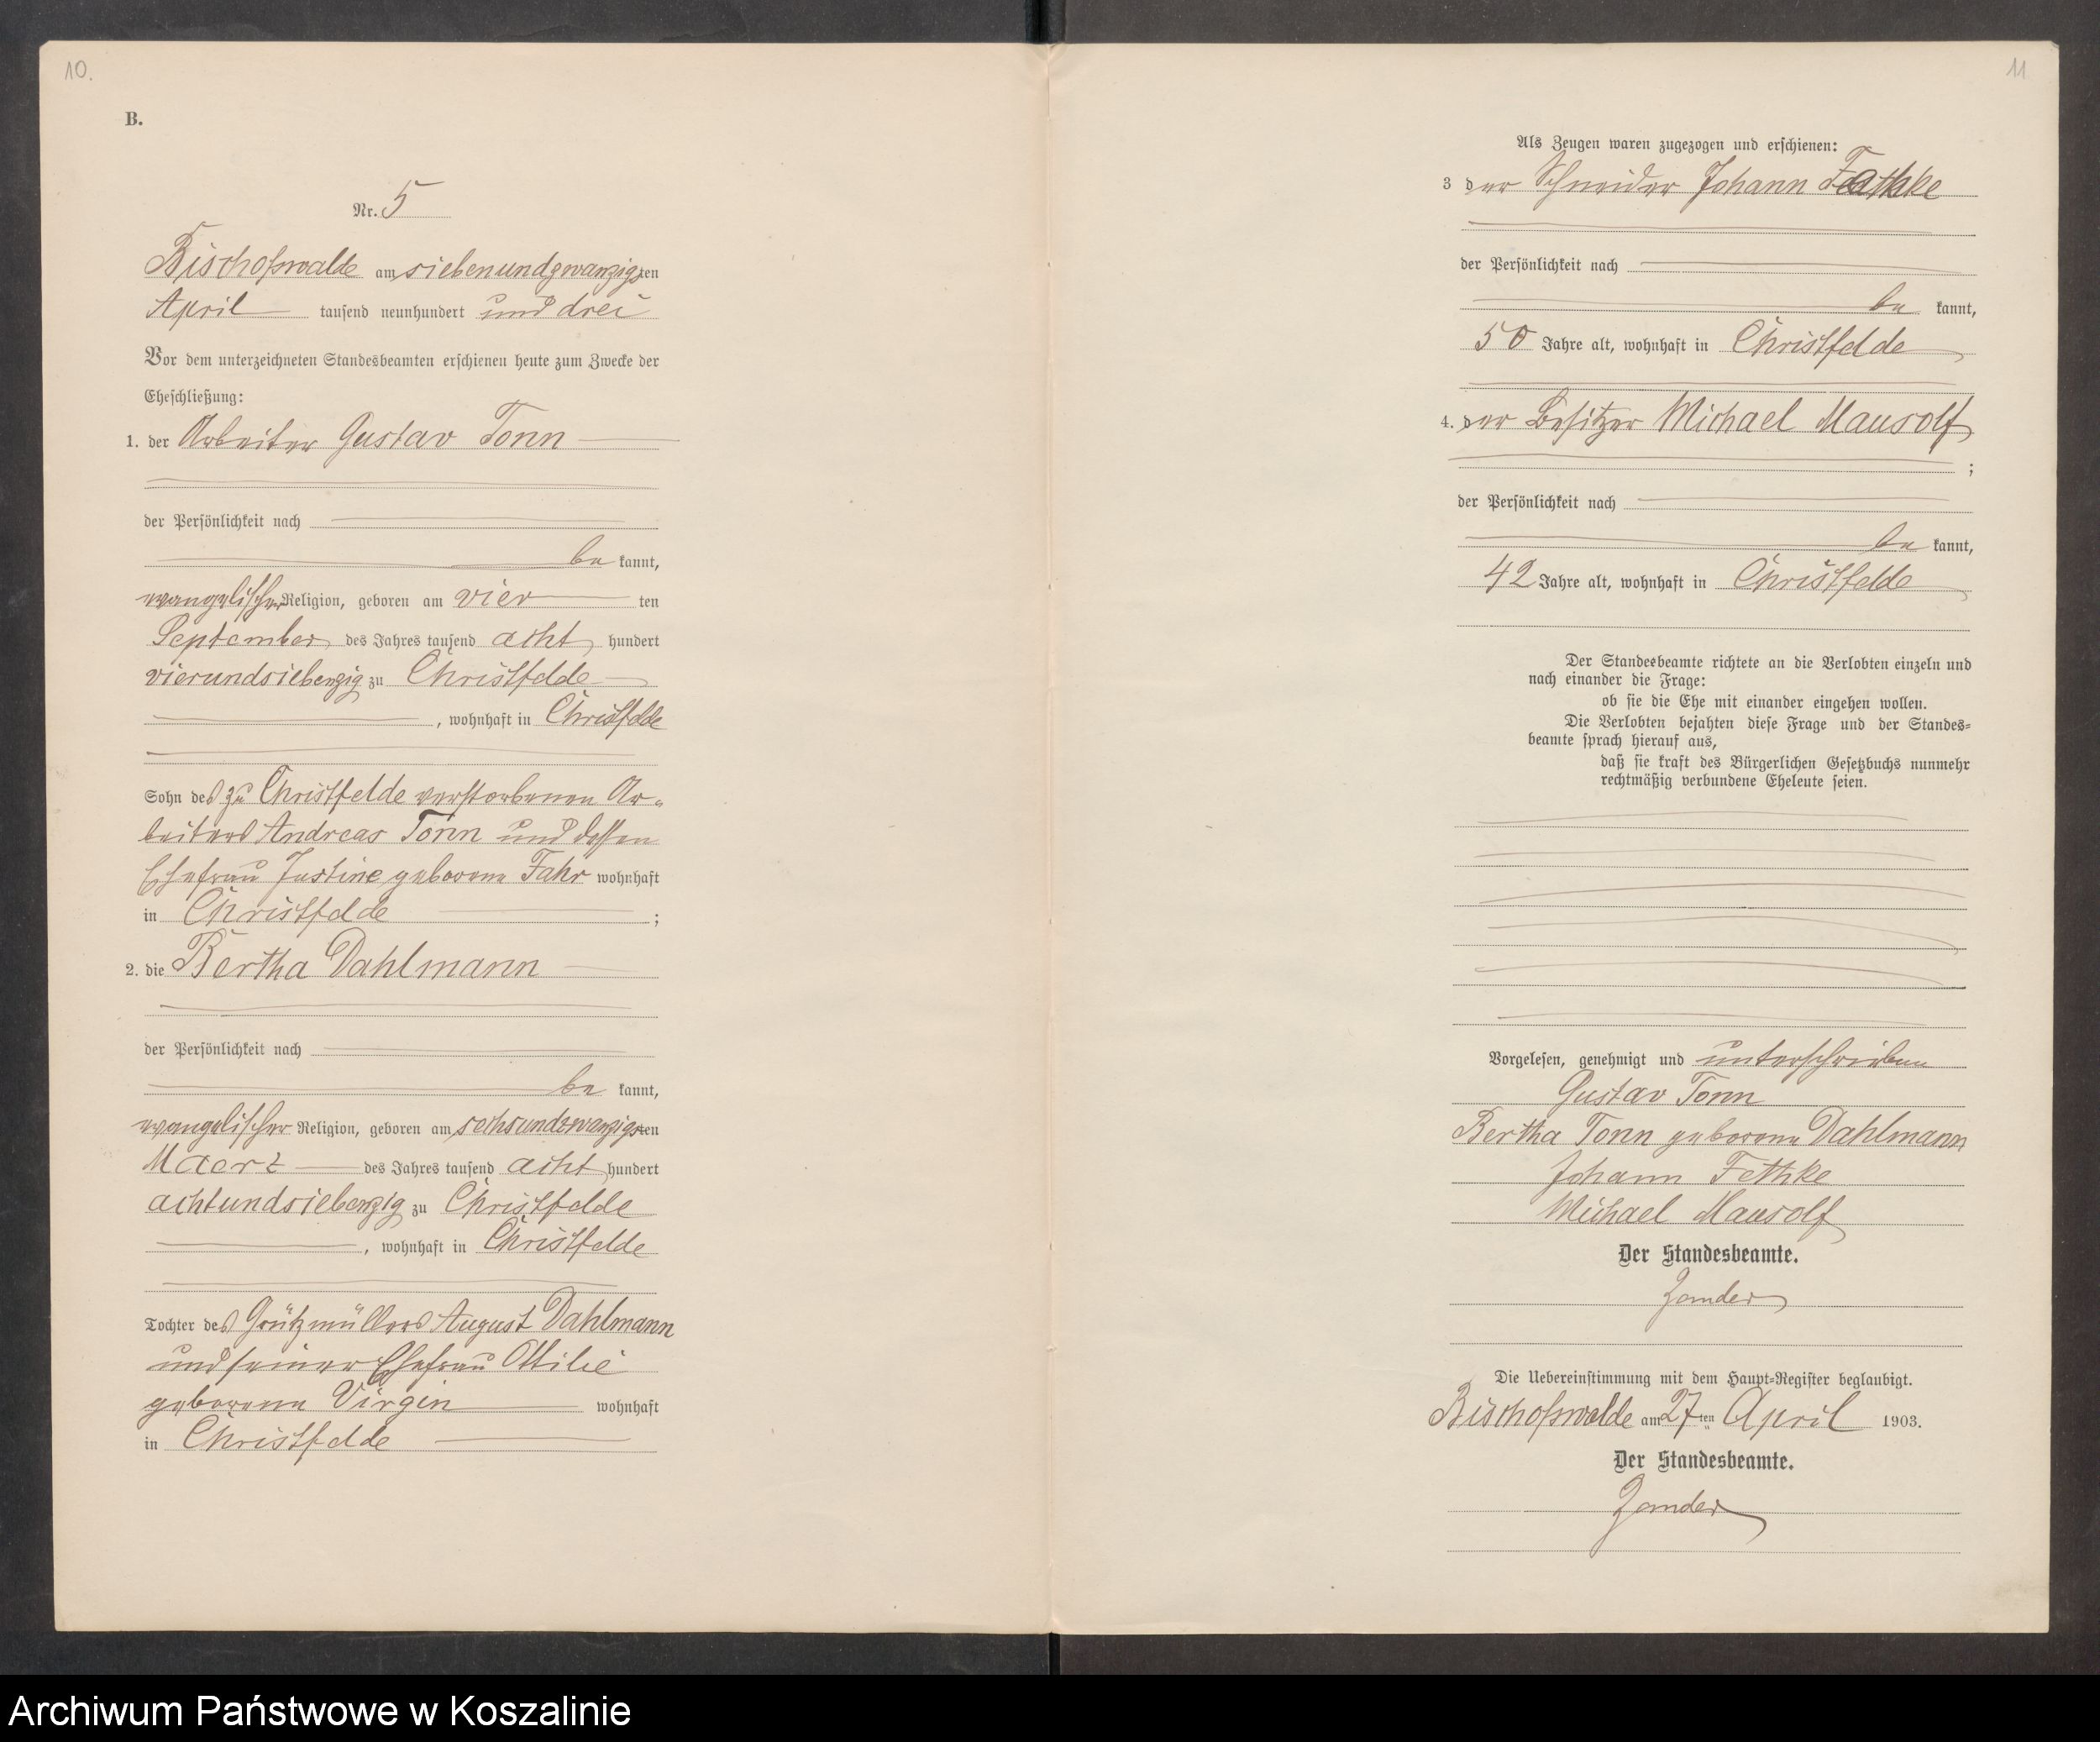 10.
B.
Nr. 5
Bischofswalde am siebenundzwanzigsten
April tausend neunhundert und drei
Vor dem unterzeichneten Standesbeamten erschienen heute zum Zwecke der
Eheschließung:
1. der Arbeiter Gustav Tonn
der Persönlichkeit nach
be kannt,
evangelischer Religion, geboren am vier ten
September des Jahres tausend acht hundert
vierundsiebenzig zu Christfelde
, wohnhaft in Christfelde
Sohn des zu Christfelde verstorbenen Ar-
beiters Andreas Tonn und dessen
Ehefrau Justine geborene Fahr wohnhaft
in Christfelde ;
2. die Bertha Dahlmann
der Persönlichkeit nach
be kannt,
evangelischer Religion, geboren am sechsundzwanzigsten
Maerz des Jahres tausend acht hundert
achtundsiebenzig zu Christfelde
, wohnhaft in Christfelde
Tochter des Grützmüllers August Dahlmann
und seiner Ehefrau Ottilie
geborene Virgin wohnhaft
in Christfelde
11
Als Zeugen waren zugezogen und erschienen:
3 der Schneider Johann
der Persönlichkeit nach
be kannt,
50 Jahre alt, wohnhaft in Christfelde
4. der Besitzer Michael Mausolf
;
der Persönlichkeit nach
be kannt,
42 Jahre alt, wohnhaft in Christfelde
Der Standesbeamte richtete an die Verlobten einzeln und
nach einander die Frage:
ob sie die Ehe mit einander eingehen wollen.
Die Verlobten bejahten diese Frage und der Standes-
beamte sprach hierauf aus,
daß sie kraft des Bürgerlichen Gesetzbuchs nunmehr
rechtmäßig verbundene Eheleute seien.
Vorgelesen, genehmigt und unterschrieben
Gustav Tonn
Bertha Tonn geborene Dahlmann
Johann Fethke
Michael Mausolf
Der Standesbeamte.
Zander
Die Uebereinstimmung mit dem Haupt-Register beglaubigt.
Bischofswalde am 27 ten April 1903.
Der Standesbeamte.
Zander
Archiwum Państwowe w Koszalinie